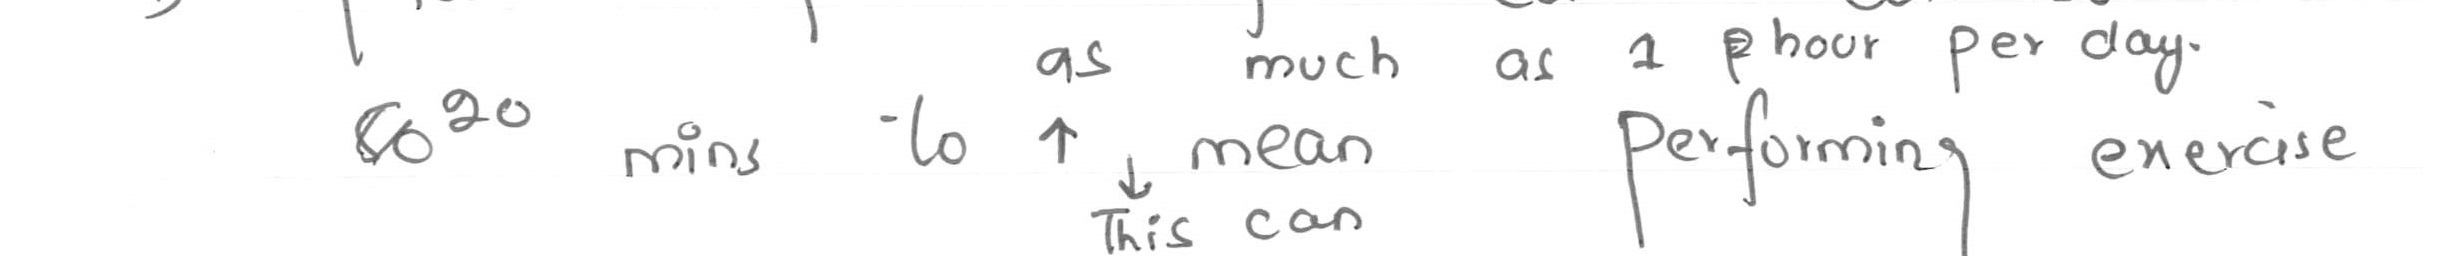 as much as 1 hour per day.
20 mins to ↑ ↓ mean performing exercise
This can